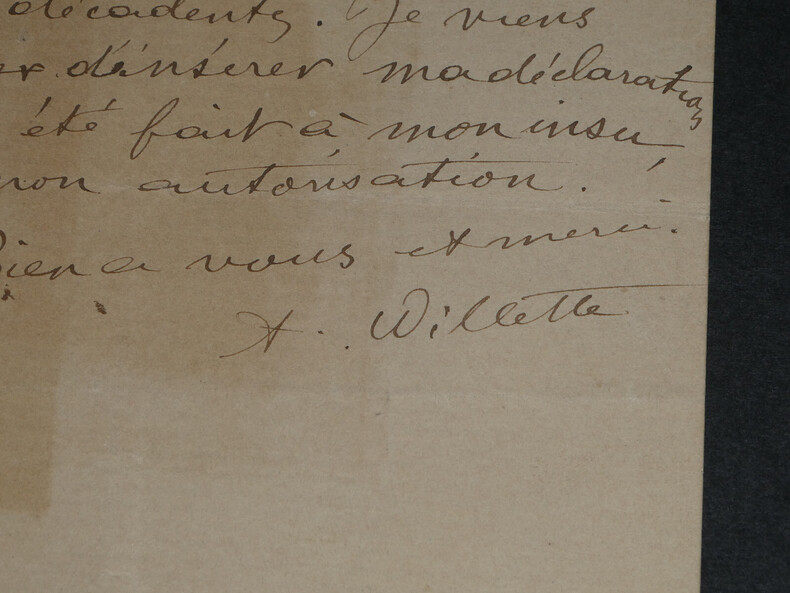 décadents. Je viens
d'insérer ma déclaration
été fait à mon insu,
mon autorisation.
Bien a vous et merci.
A. Willette